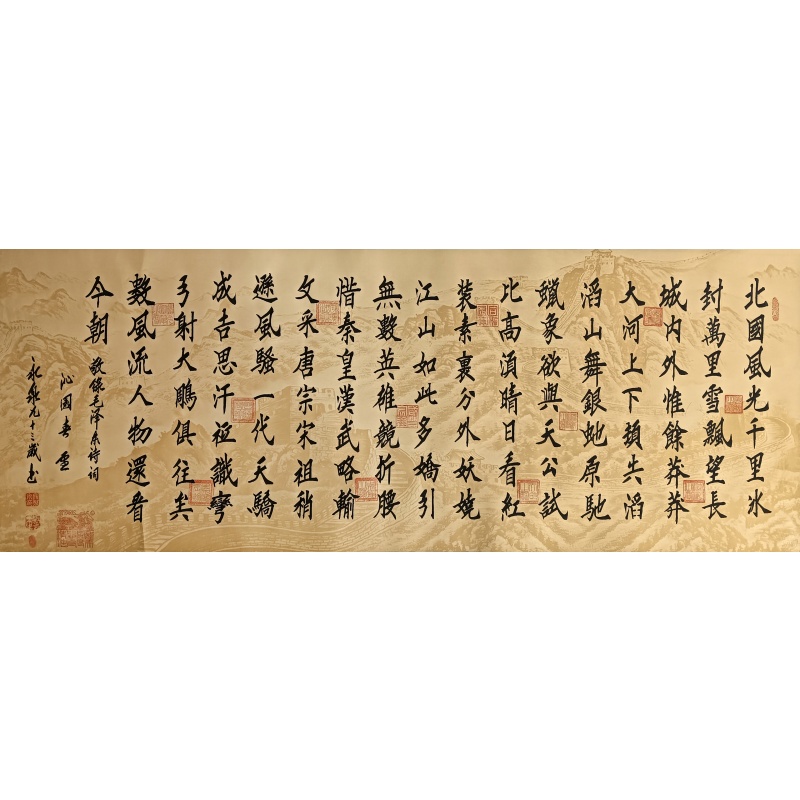 北國風光千里冰
封萬里雪飄望長
城内外惟餘莽莽
大河上下頓失滔
滔山舞銀蛇原馳
蠟象欲與天公試
比高須晴日看紅
裝素裹分外妖嬈
江山如此多嬌引
無數英雄競折腰
惜秦皇漢武略輸
文采唐宗宋祖稍
遜風騷一代天驕
成吉思汗祗識彎
弓射大鵰俱往矣
數風流人物還看
今朝
敬錄毛泽东诗词
沁園春雪
九十三歲书